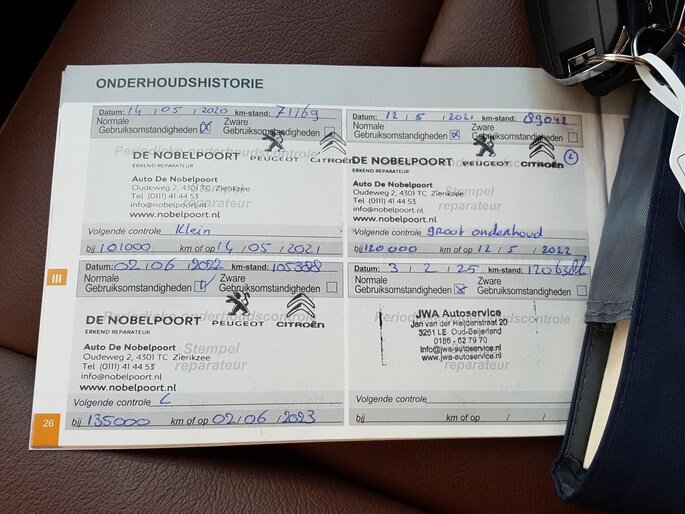 ONDERHOUDSHISTORIE
Datum: 14 / 05 / 2020 km-stand: 71169
Normale Gebruiksomstandigheden ☒ Zware Gebruiksomstandigheden ☐
Periodieke onderhoudscontrole
DE NOBELPOORT PEUGEOT CITROËN
ERKEND REPARATEUR
Auto De Nobelpoort
Oudeweg 2, 4301 TC Zierikzee
Tel (0111) 41 44 53
info@nobelpoort.nl
www.nobelpoort.nl
Stempel reparateur
Volgende controle Klein
bij 101000 km of op 14 / 05 / 2021
Datum: 12 / 5 / 2021 km-stand: 89042
Normale Gebruiksomstandigheden ☒ Zware Gebruiksomstandigheden ☐
Periodieke onderhoudscontrole
DE NOBELPOORT PEUGEOT CITROËN
ERKEND REPARATEUR
Auto De Nobelpoort
Oudeweg 2, 4301 TC Zierikzee
Tel (0111) 41 44 53
info@nobelpoort.nl
www.nobelpoort.nl
Stempel reparateur
Volgende controle groot onderhoud
bij 120.000 km of op 12 / 5 / 2022
III
Datum: 02 / 06 / 2022 km-stand: 105388
Normale Gebruiksomstandigheden ☑ Zware Gebruiksomstandigheden ☐
Periodieke onderhoudscontrole
DE NOBELPOORT PEUGEOT CITROËN
ERKEND REPARATEUR
Auto De Nobelpoort
Oudeweg 2, 4301 TC Zierikzee
Tel (0111) 41 44 53
info@nobelpoort.nl
www.nobelpoort.nl
Stempel reparateur
Volgende controle
bij 135000 km of op 02 / 06 / 2023
Datum: 3 / 2 / 25 km-stand:
Normale Gebruiksomstandigheden ☒ Zware Gebruiksomstandigheden ☐
Periodieke onderhoudscontrole
JWA Autoservice
Jan van der Heijdenstraat 20
3261 LE Oud-Beijerland
0186 - 62 79 70
info@jwa-autoservice.nl
www.jwa-autoservice.nl
Volgende controle
bij km of op / /
26